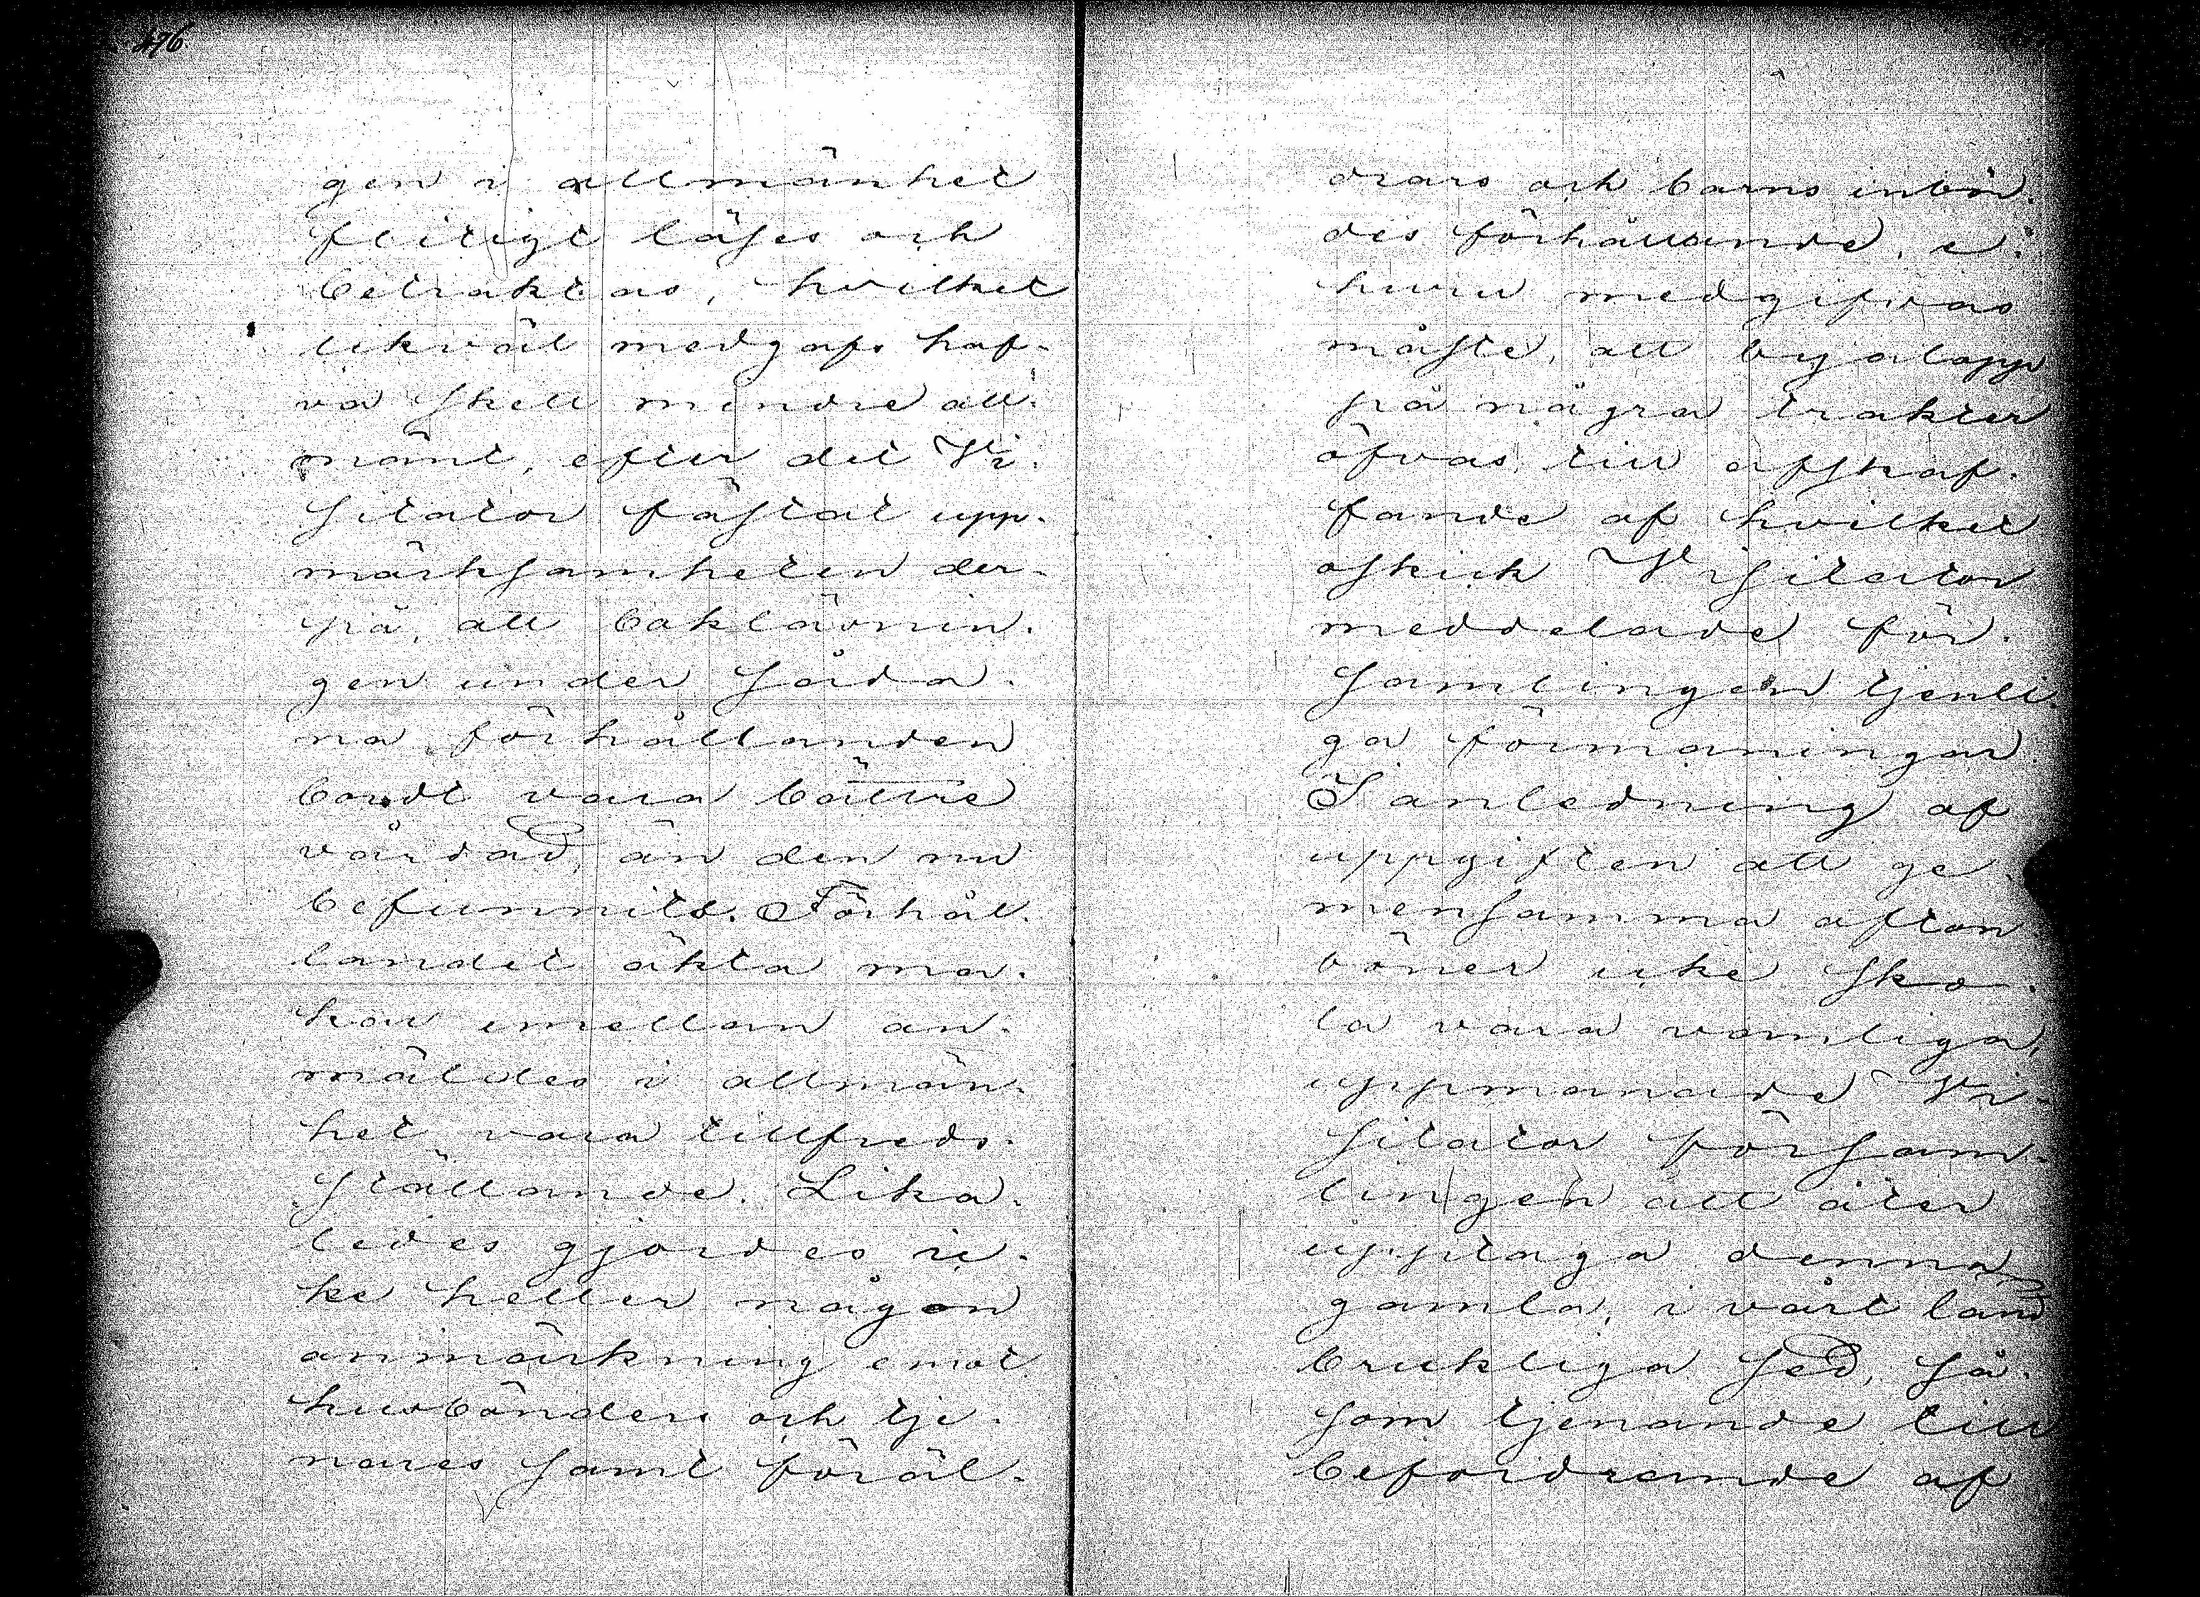 476
gen i allmänhet
flitigt läses och
betraktas, hvilket
likväl medgafs haf-
va skett mindre all-
mänt, efter det Vi-
sitator fästat upp-
märksamheten der-
på, att boklärdnin-
gen under såda-
na förhållanden
bordt vara bättre
vårdad, än den nu
befunnits. Förhål-
landet äkta ma-
kar emellan an-
mäldes i allmän-
het vara tillfreds-
ställande. Lika-
ledes gjordes ic-
ke heller någon
anmärkning emot
husbönders och tje-
nares samt föräl-
drars och barns inbör-
des förhållande, e-
huru medgifvas
måste, att byalopp
på några trakter
öfvas, till afskaf-
fande af hvilket
oskick Visitator
meddelade för-
samlingen tjenli-
ga förmaningar.
I anledning af
uppgiften att ge-
mensamma afton
böner icke sko-
la vara vanliga,
uppmanade Vi-
sitator försam-
lingen att åter
upptaga denna
gamla, i vårt land
brukliga sed, så-
som tjenande till
befordrande af